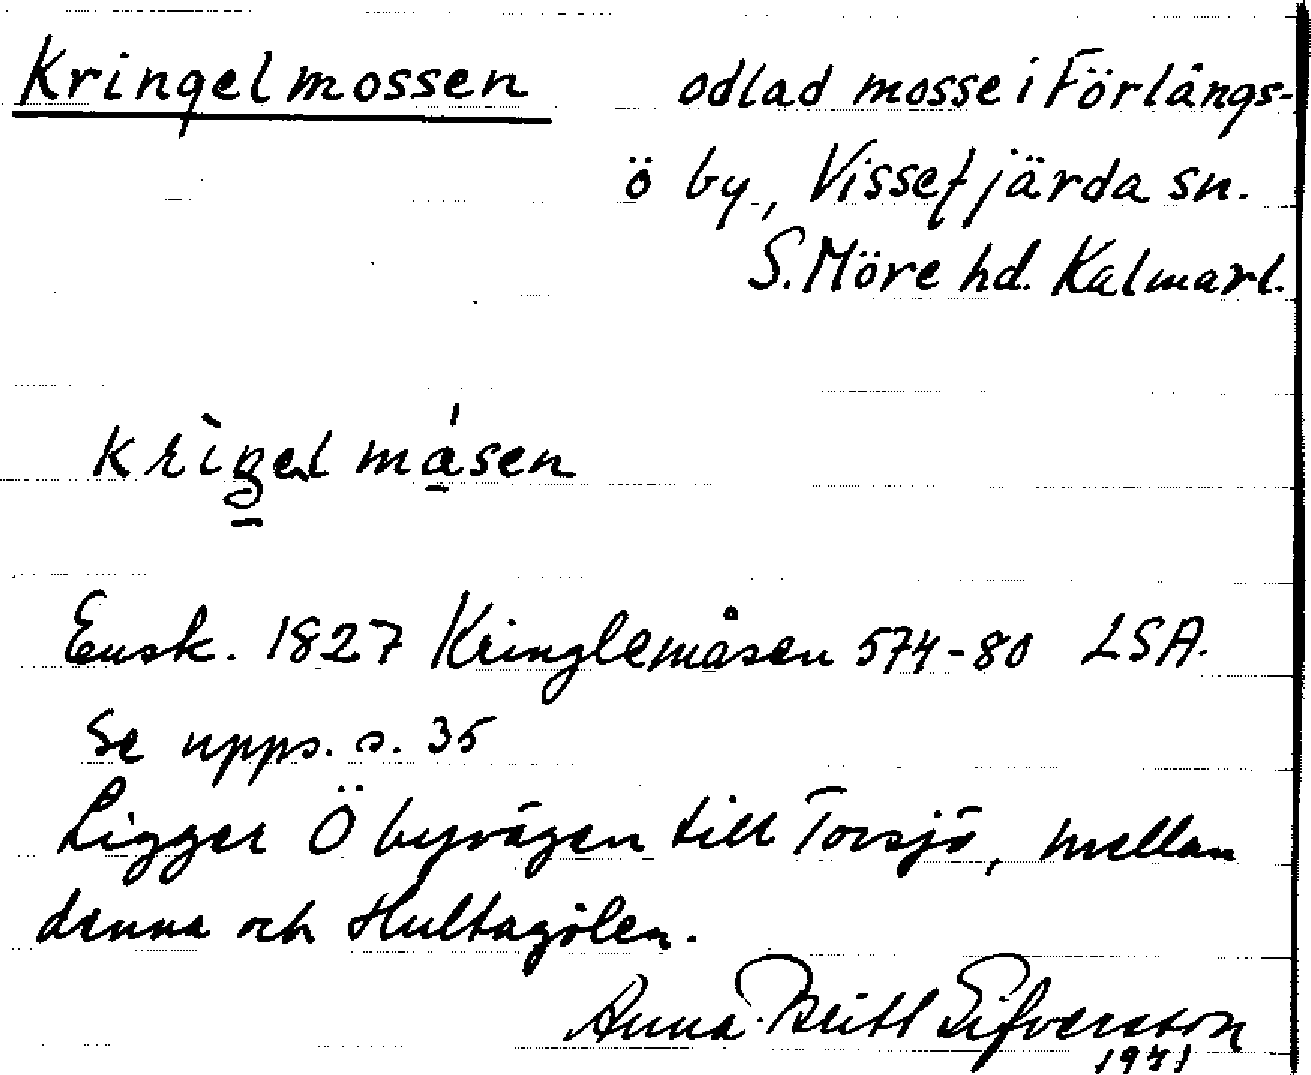 Kringelmossen odlad mosse i Förlångs-
ö by, Vissefjärda sn.
S. Möre hd. Kalmarl.
Ensk. 1827 Kringlemåsen 574-80 LSA.
Se upps. s. 35
Ligger Ö byvägen till Torsjö, mellan
denna och Hultagölen.
Anna-Britt Sifversson
1941